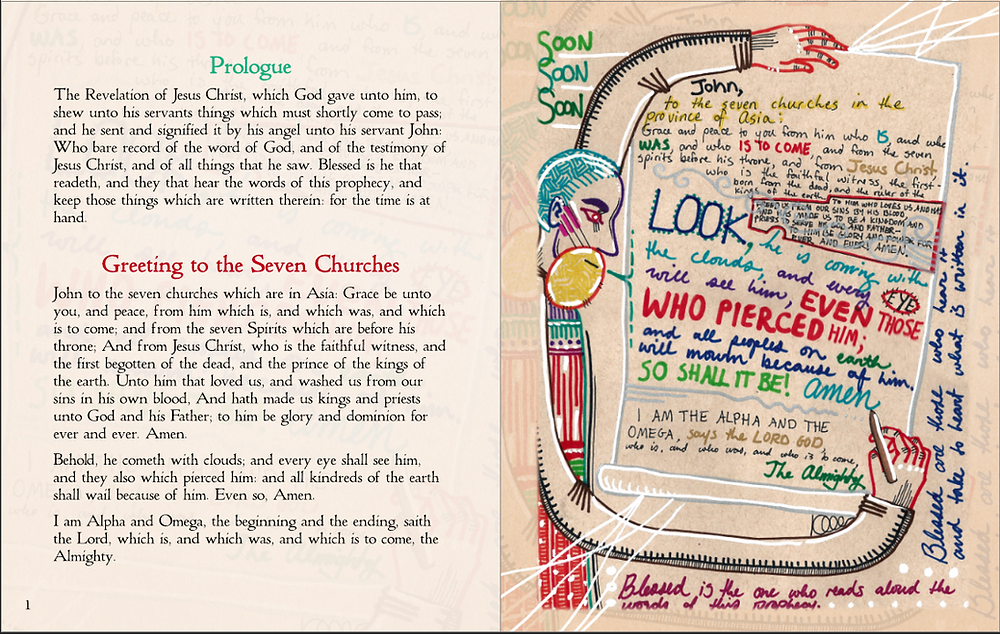 Prologue
The Revelation of Jesus Christ, which God gave unto him, to
shew unto his servants things which must shortly come to pass;
and he sent and signified it by his angel unto his servant John:
Who bare record of the word of God, and of the testimony of
Jesus Christ, and of all things that he saw. Blessed is he that
readeth, and they that hear the words of this prophecy, and
keep those things which are written therein: for the time is at
hand.
Greeting to the Seven Churches
John to the seven churches which are in Asia: Grace be unto
you, and peace, from him which is, and which was, and which
is to come; and from the seven Spirits which are before his
throne; And from Jesus Christ, who is the faithful witness, and
the first begotten of the dead, and the prince of the kings of
the earth. Unto him that loved us, and washed us from our
sins in his own blood, And hath made us kings and priests
unto God and his Father; to him be glory and dominion for
ever and ever. Amen.
Behold, he cometh with clouds; and every eye shall see him,
and they also which pierced him: and all kindreds of the earth
shall wail because of him. Even so, Amen.
I am Alpha and Omega, the beginning and the ending, saith
the Lord, which is, and which was, and which is to come, the
Almighty.
1
SOON
SOON
SOON
John,
to the seven churches in the
province of Asia:
Grace and peace to you from him who IS, and who
WAS, and who IS TO COME, and from the seven
spirits before his throne, and from Jesus Christ,
who is the faithful witness, the first-
born from the dead, and the ruler of the
kings of the earth.
TO HIM WHO LOVES US AND HAS
FREED US FROM OUR SINS BY HIS BLOOD,
AND HAS MADE US TO BE A KINGDOM AND
PRIESTS TO SERVE HIS GOD AND FATHER-
TO HIM BE GLORY AND POWER FOR
EVER AND EVER! AMEN.
LOOK, he is coming with
the clouds, and every EYE
will see him, EVEN THOSE
WHO PIERCED HIM;
and all peoples on earth
will mourn because of him.
SO SHALL IT BE! amen
I AM THE ALPHA AND THE
OMEGA, says the LORD GOD,
who is, and who was, and who is to come,
The Almighty
Blessed are those who hear it
and take to heart what is written in it.
Blessed is the one who reads aloud the
words of this prophecy.